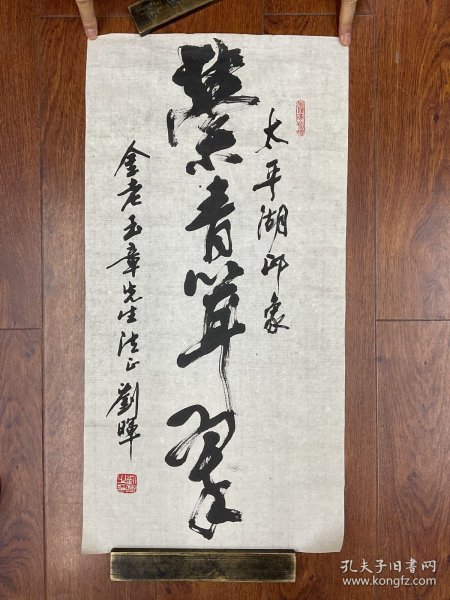 太平湖印象
縈青耸翠
金老玉章先生法正 劉暉
孔夫子旧书网
www.kongfz.com